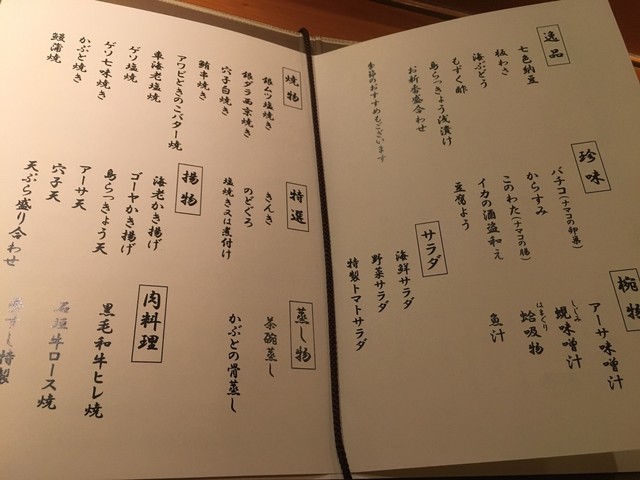 逸品
七色納豆
板わさ
海ぶどう
もずく酢
島らっきょう浅漬け
お新香盛合わせ
季節のおすすめもございます
珍味
バチコ(ナマコの卵巣)
からすみ
このわた(ナマコの腸)
イカの酒盗和え
豆腐よう
サラダ
海鮮サラダ
野菜サラダ
特製トマトサラダ
椀物
アーサ味噌汁
蜆味噌汁
しじみ
蛤吸物
はまぐり
魚汁
焼物
銀ムツ塩焼き
銀ダラ西京焼き
穴子白焼き
鮪串焼き
アワビときのこバター焼
車海老塩焼
ゲソ塩焼
ゲソ七味焼き
かぶと焼き
鰻蒲焼
特選
きんき
のどぐろ
塩焼き又は煮付け
揚物
海老かき揚げ
ゴーヤかき揚げ
島らっきょう天
アーサ天
穴子天
天ぷら盛り合わせ
蒸し物
茶碗蒸し
かぶとの骨蒸し
肉料理
黒毛和牛ヒレ焼
石垣牛ロース焼
すし特製